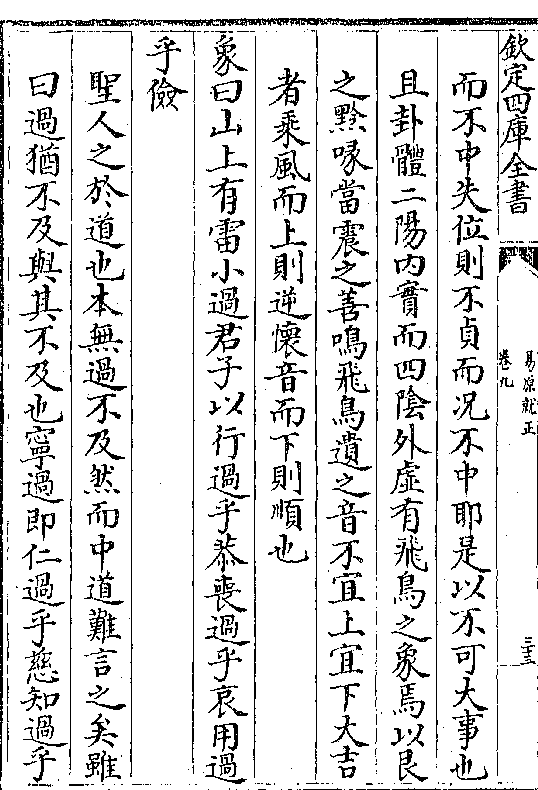 欽定四庫全書
易原就正
卷九
三十三
而不中失位則不貞而況不中耶是以不可大事也
且卦體二陽内實而四陰外虛有飛鳥之象焉以艮
之黔喙當震之善鳴飛鳥遺之音不宜上宜下大吉
者乘風而上則逆懷音而下則順也
象曰山上有雷小過君子以行過乎恭喪過乎哀用過
乎儉
聖人之於道也本無過不及然而中道難言之矣雖
曰過猶不及與其不及也寧過即仁過乎慈知過乎